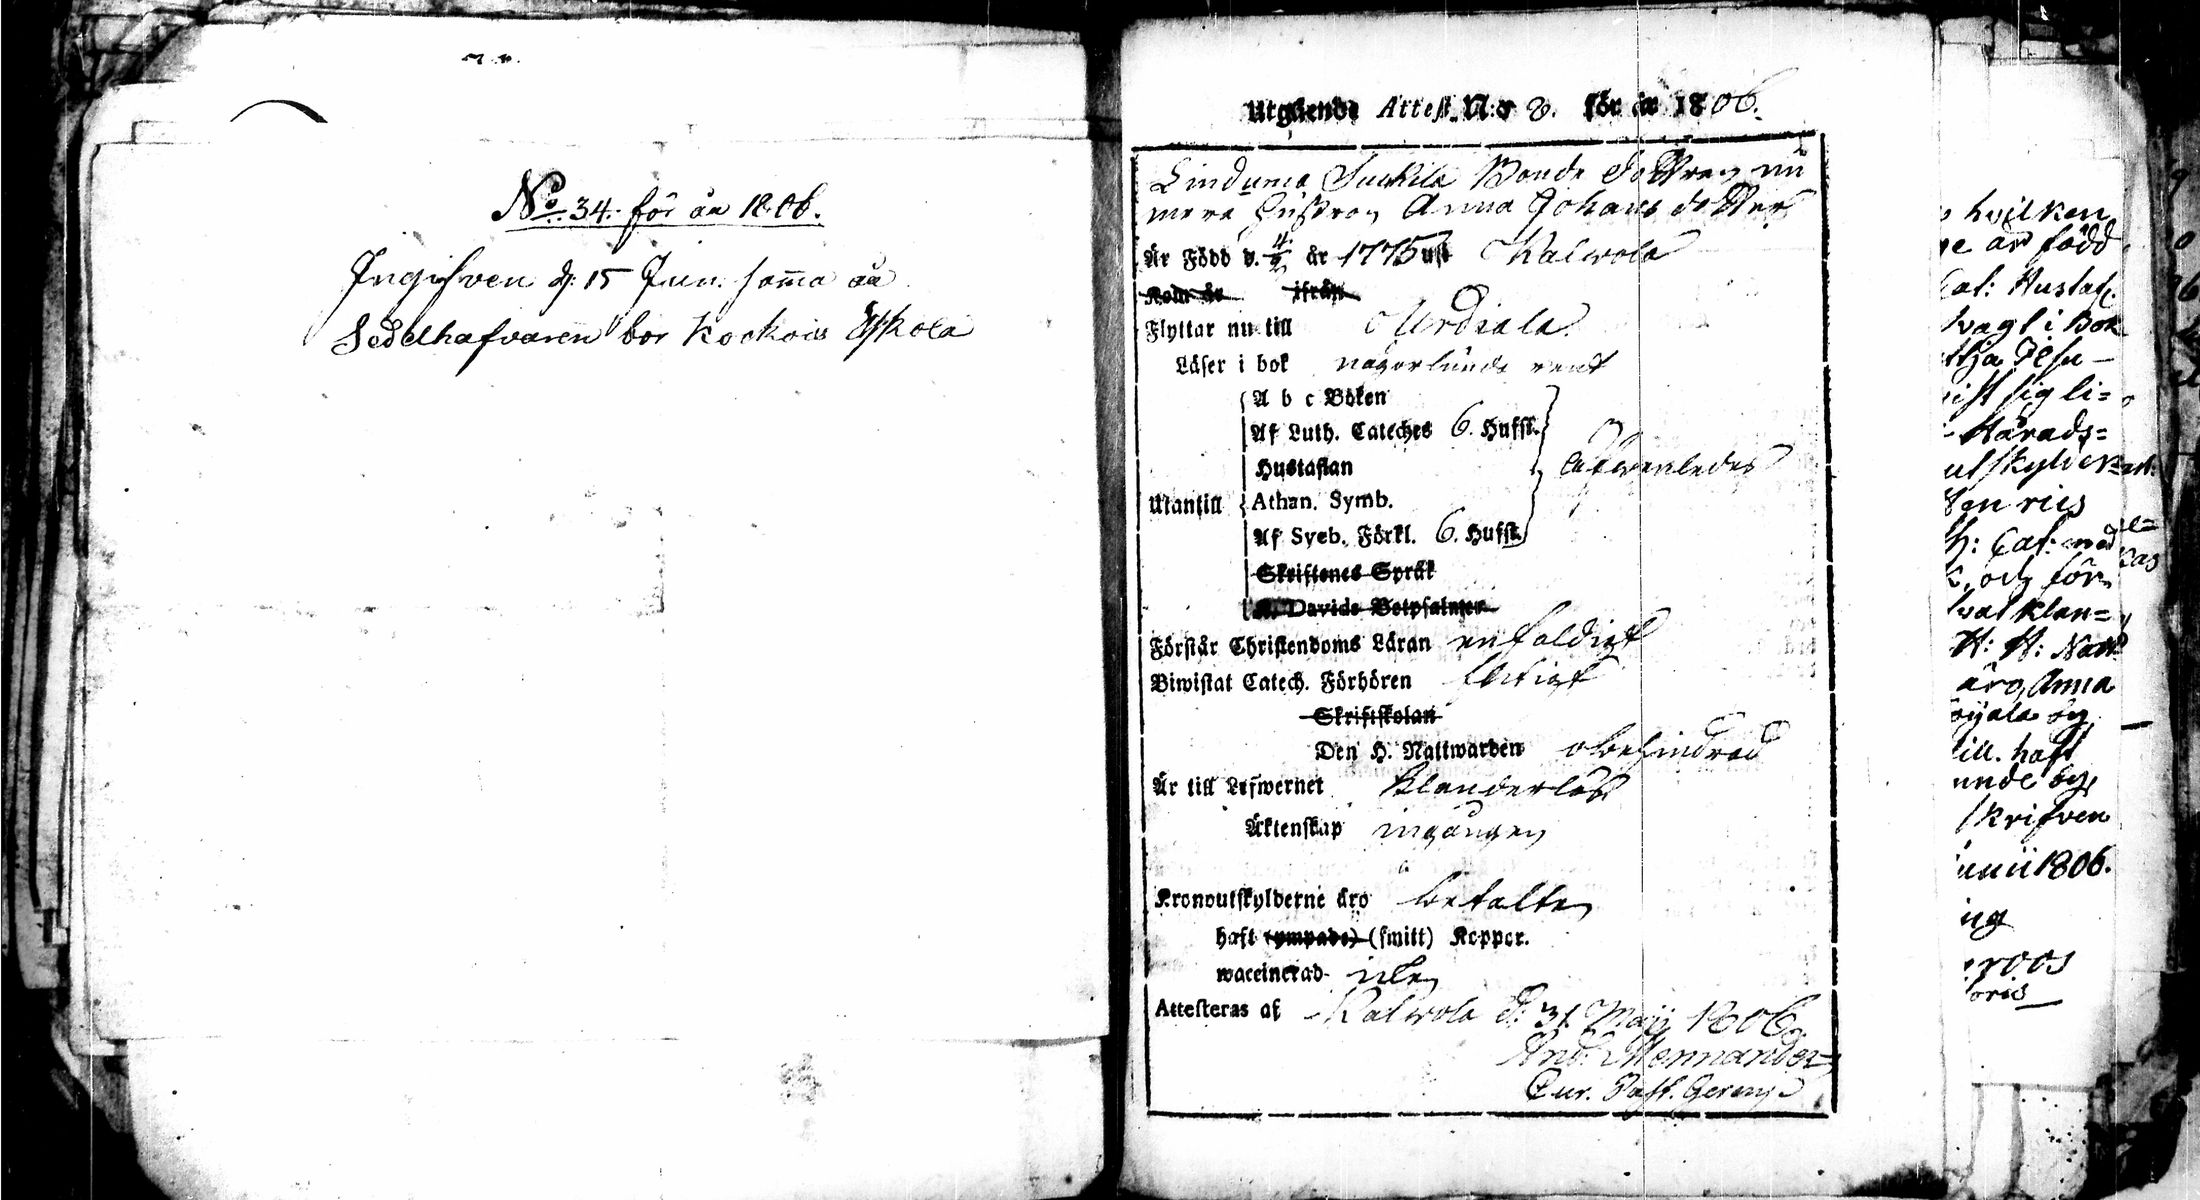 No 34. för åa 1806.
Ingifven d: 15 Jun. samma åa
Sedelhafvaren bor Kockois Eskola
Utgående Attest N:o 8. för år 1806.
Linduma Suckila Bonde dottren nu
mera Hustron Anna Johans dotter
Är Född d. 4/2 år 1775 uti Kalwola
Kom år ifrån
Flyttar nu till Urdiala
Läser i bok någorlunda rent
A b c Boken
Af Luth. Cateches 6. Hufst.
Hustaflan
äfwenledes
Utantill Athan. Symb.
Af Sveb. Förkl. 6. Hufst.
Skriftenes Språk
Davids Botpsalmer
Förstår Christendoms Läran enfaldigt
Biwistat Catech. Förhören flitigt
Skriftskolan
Den H. Nattwarden obehindrad
Är till Lefwernet Klanderlös
Äktenskap ingången
Kronoutskylderne äro betalte
haft (ympade) (smitt) Koppor.
waccinerad icke
Attesteras af Kalwola d: 31 Maji 1806.
And. Mennander
Cur. Past. Gerens
hvilken
är född
Cat: Hustafl.
svagt i Bok
Härads=
H: Cat: med
och för
H: H: Natt
äro, Anna
till. haft
skrifven
Junii 1806.